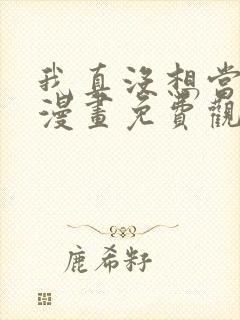 我真没想当
漫畫免費觀
鹿希籽